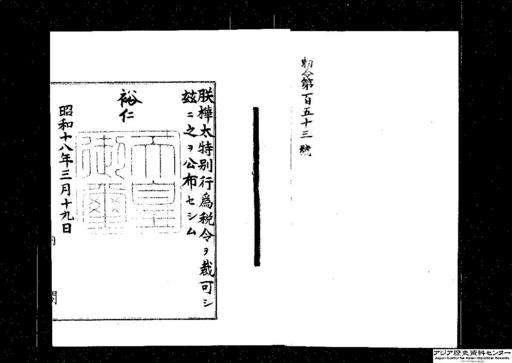 勅令第百五十三號
朕樺太特別行爲税令ヲ裁可シ
茲ニ之ヲ公布セシム
裕仁
天皇御璽
昭和十八年三月十九日
内閣
アジア歴史資料センター
Japan Center for Asian Historical Records